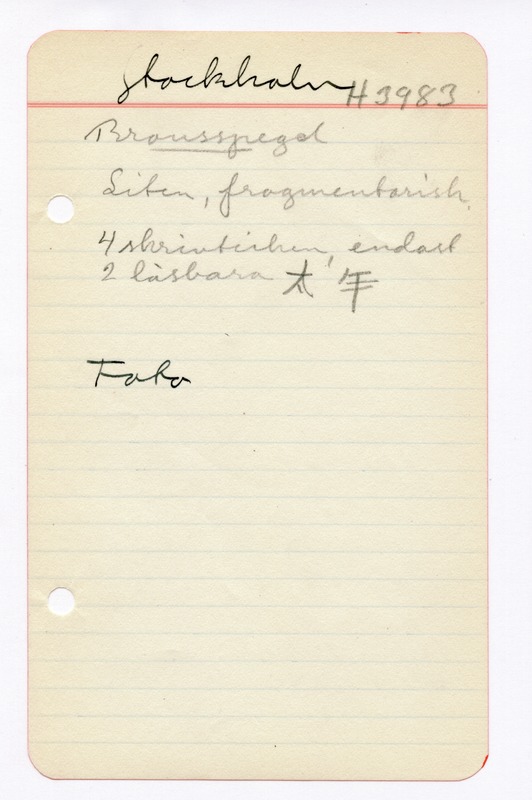 Stockholm H3983
Bronsspegel
Liten, fragmentarisk.
4 skrivtecken, endast
2 läsbara
Foto